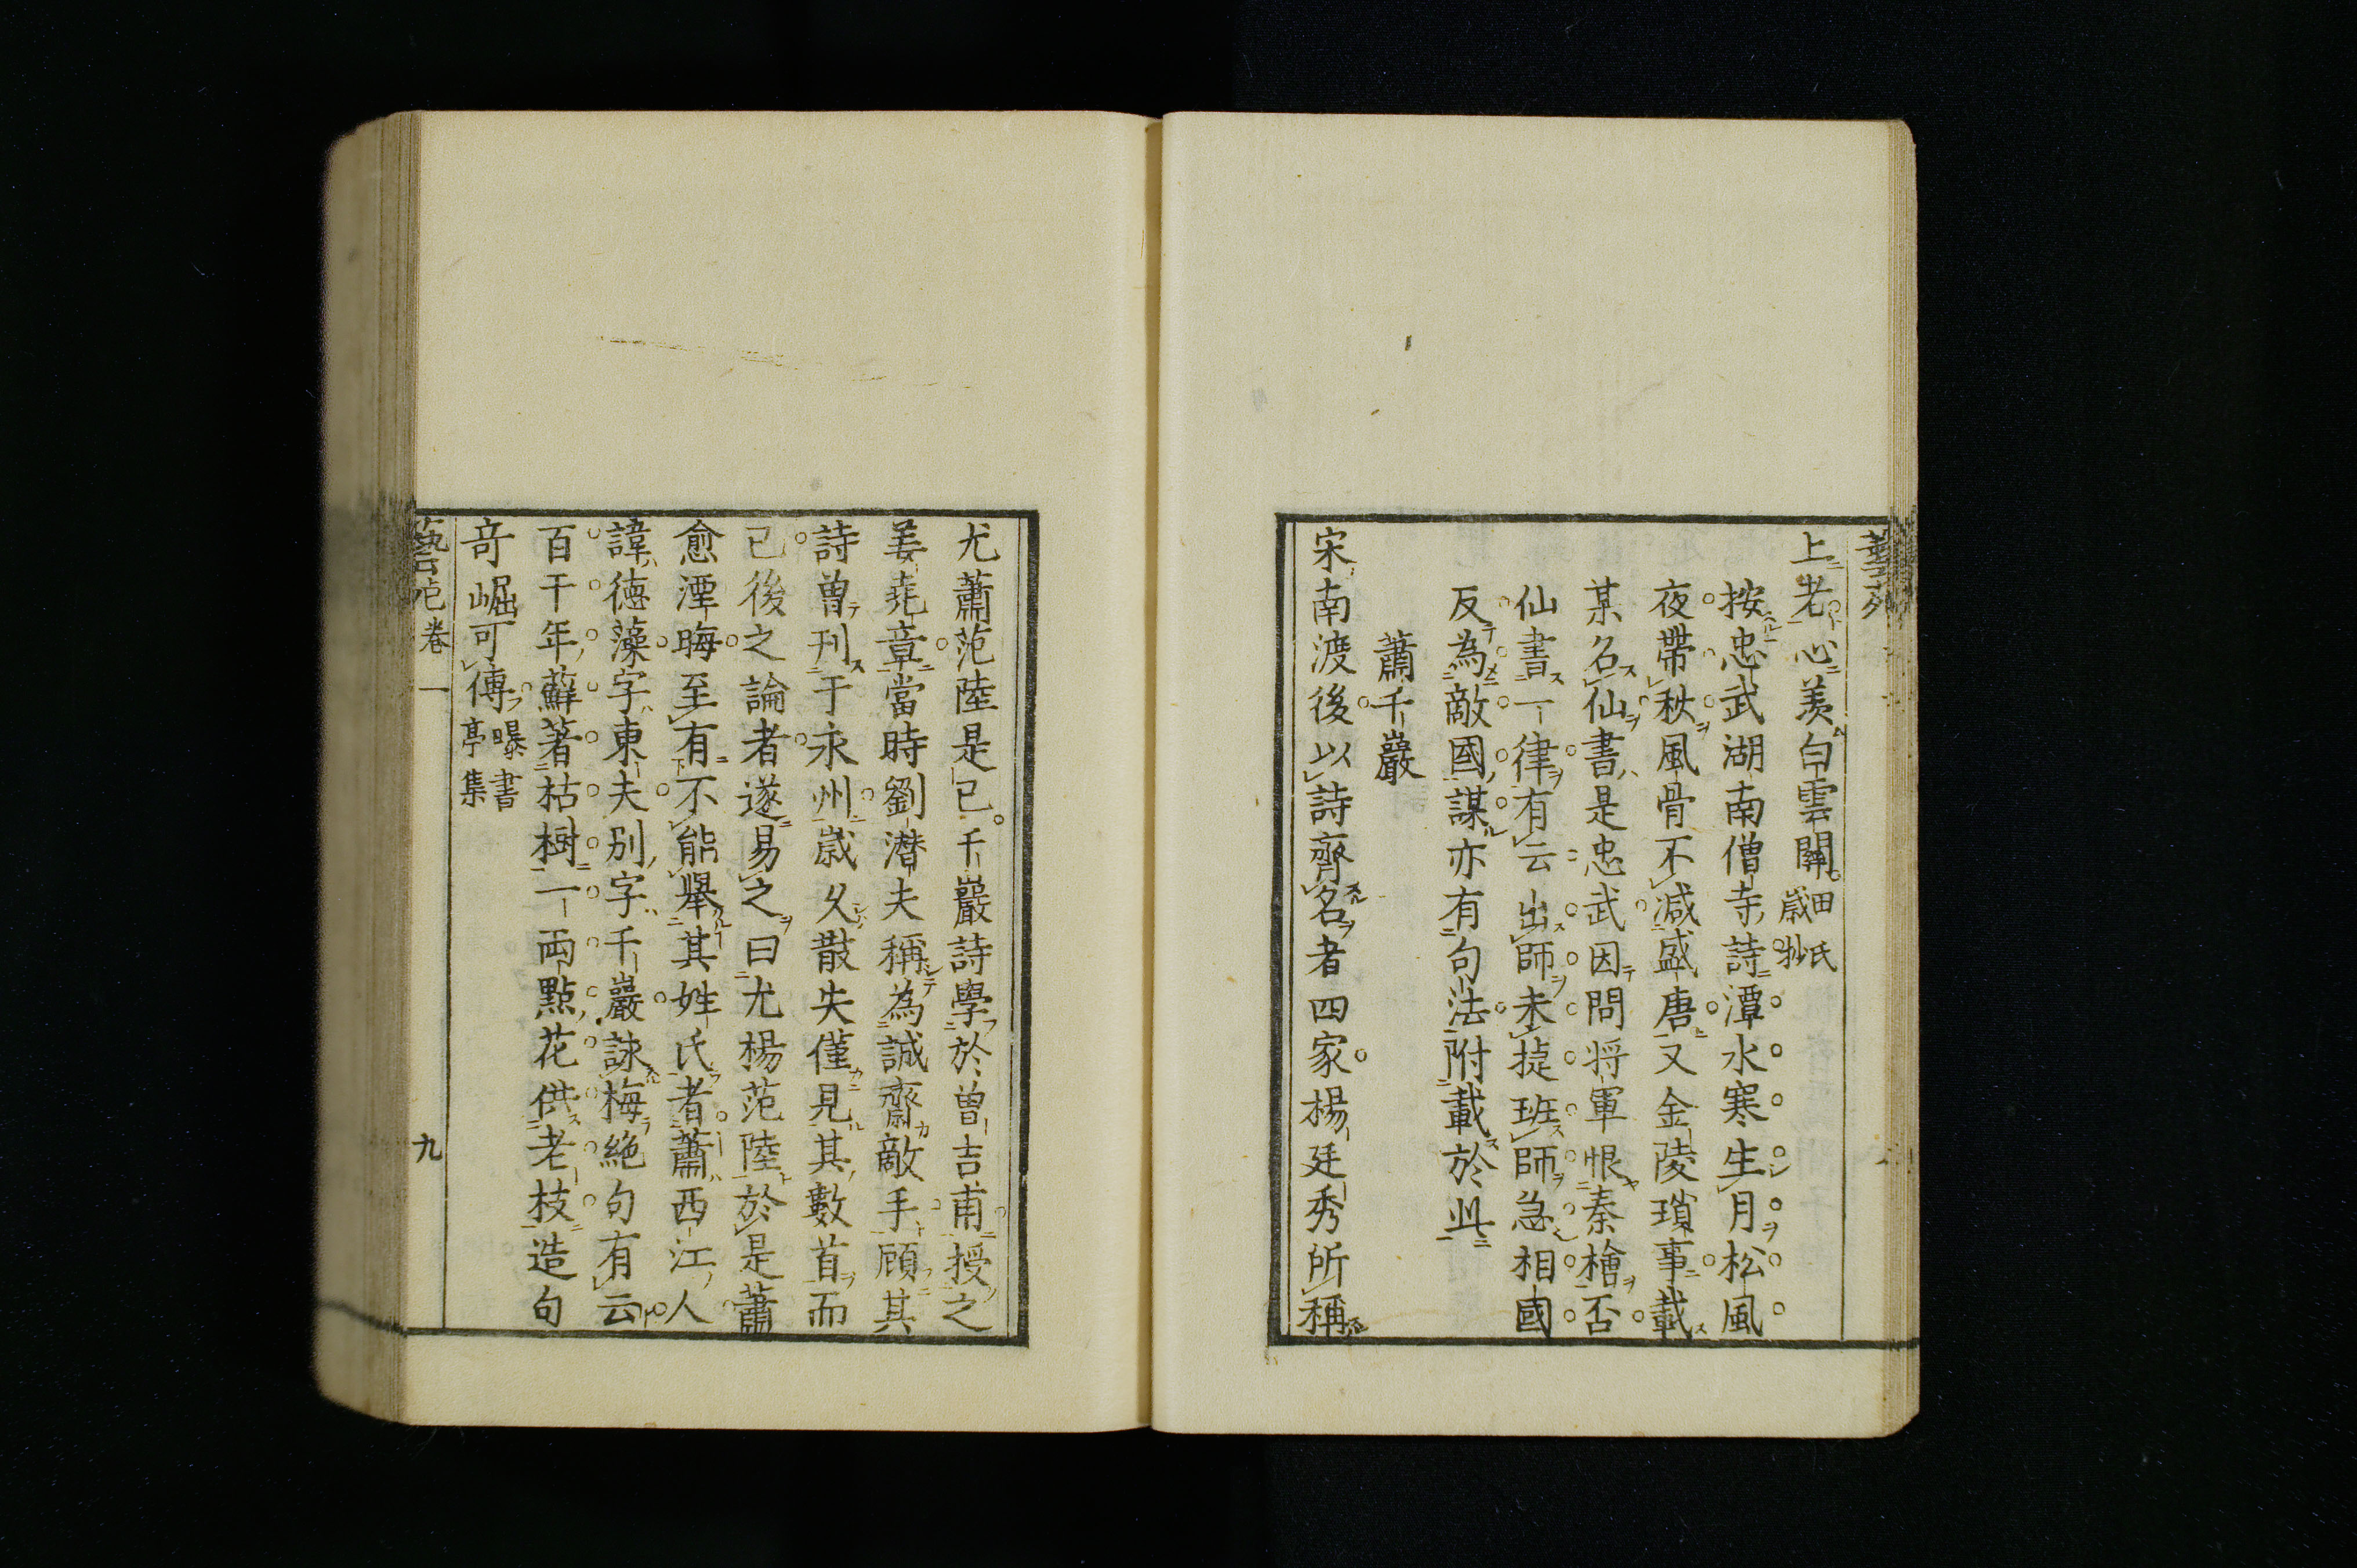 上老心羨白雲閑。田氏歲抄
按忠武湖南僧寺詩潭水寒生月松風
夜帶秋風骨不減盛唐又金陵瑣事載
某名仙書是忠武因問将軍恨秦檜否
仙書一律有云出師未㨗班師急相國
反為敵國謀亦有句法附載於此
蕭千巖
宋南渡後以詩齊名者四家楊廷秀所稱
尤蕭范陸是已。千巖詩學於曽吉甫授之
姜堯章當時劉潜夫稱為誠齋敵手顧其
詩曽刊于永州歲久散失僅見其數首而
已後之論者遂易之曰尤楊范陸於是蕭
愈湮晦至有不能舉其姓氏者蕭西江人
諱德藻字東夫別字千巖詠梅絶句有云
百千年蘚著枯樹一兩點花供老枝造句
竒崛可傳曝書亭集
藝苑卷一
九